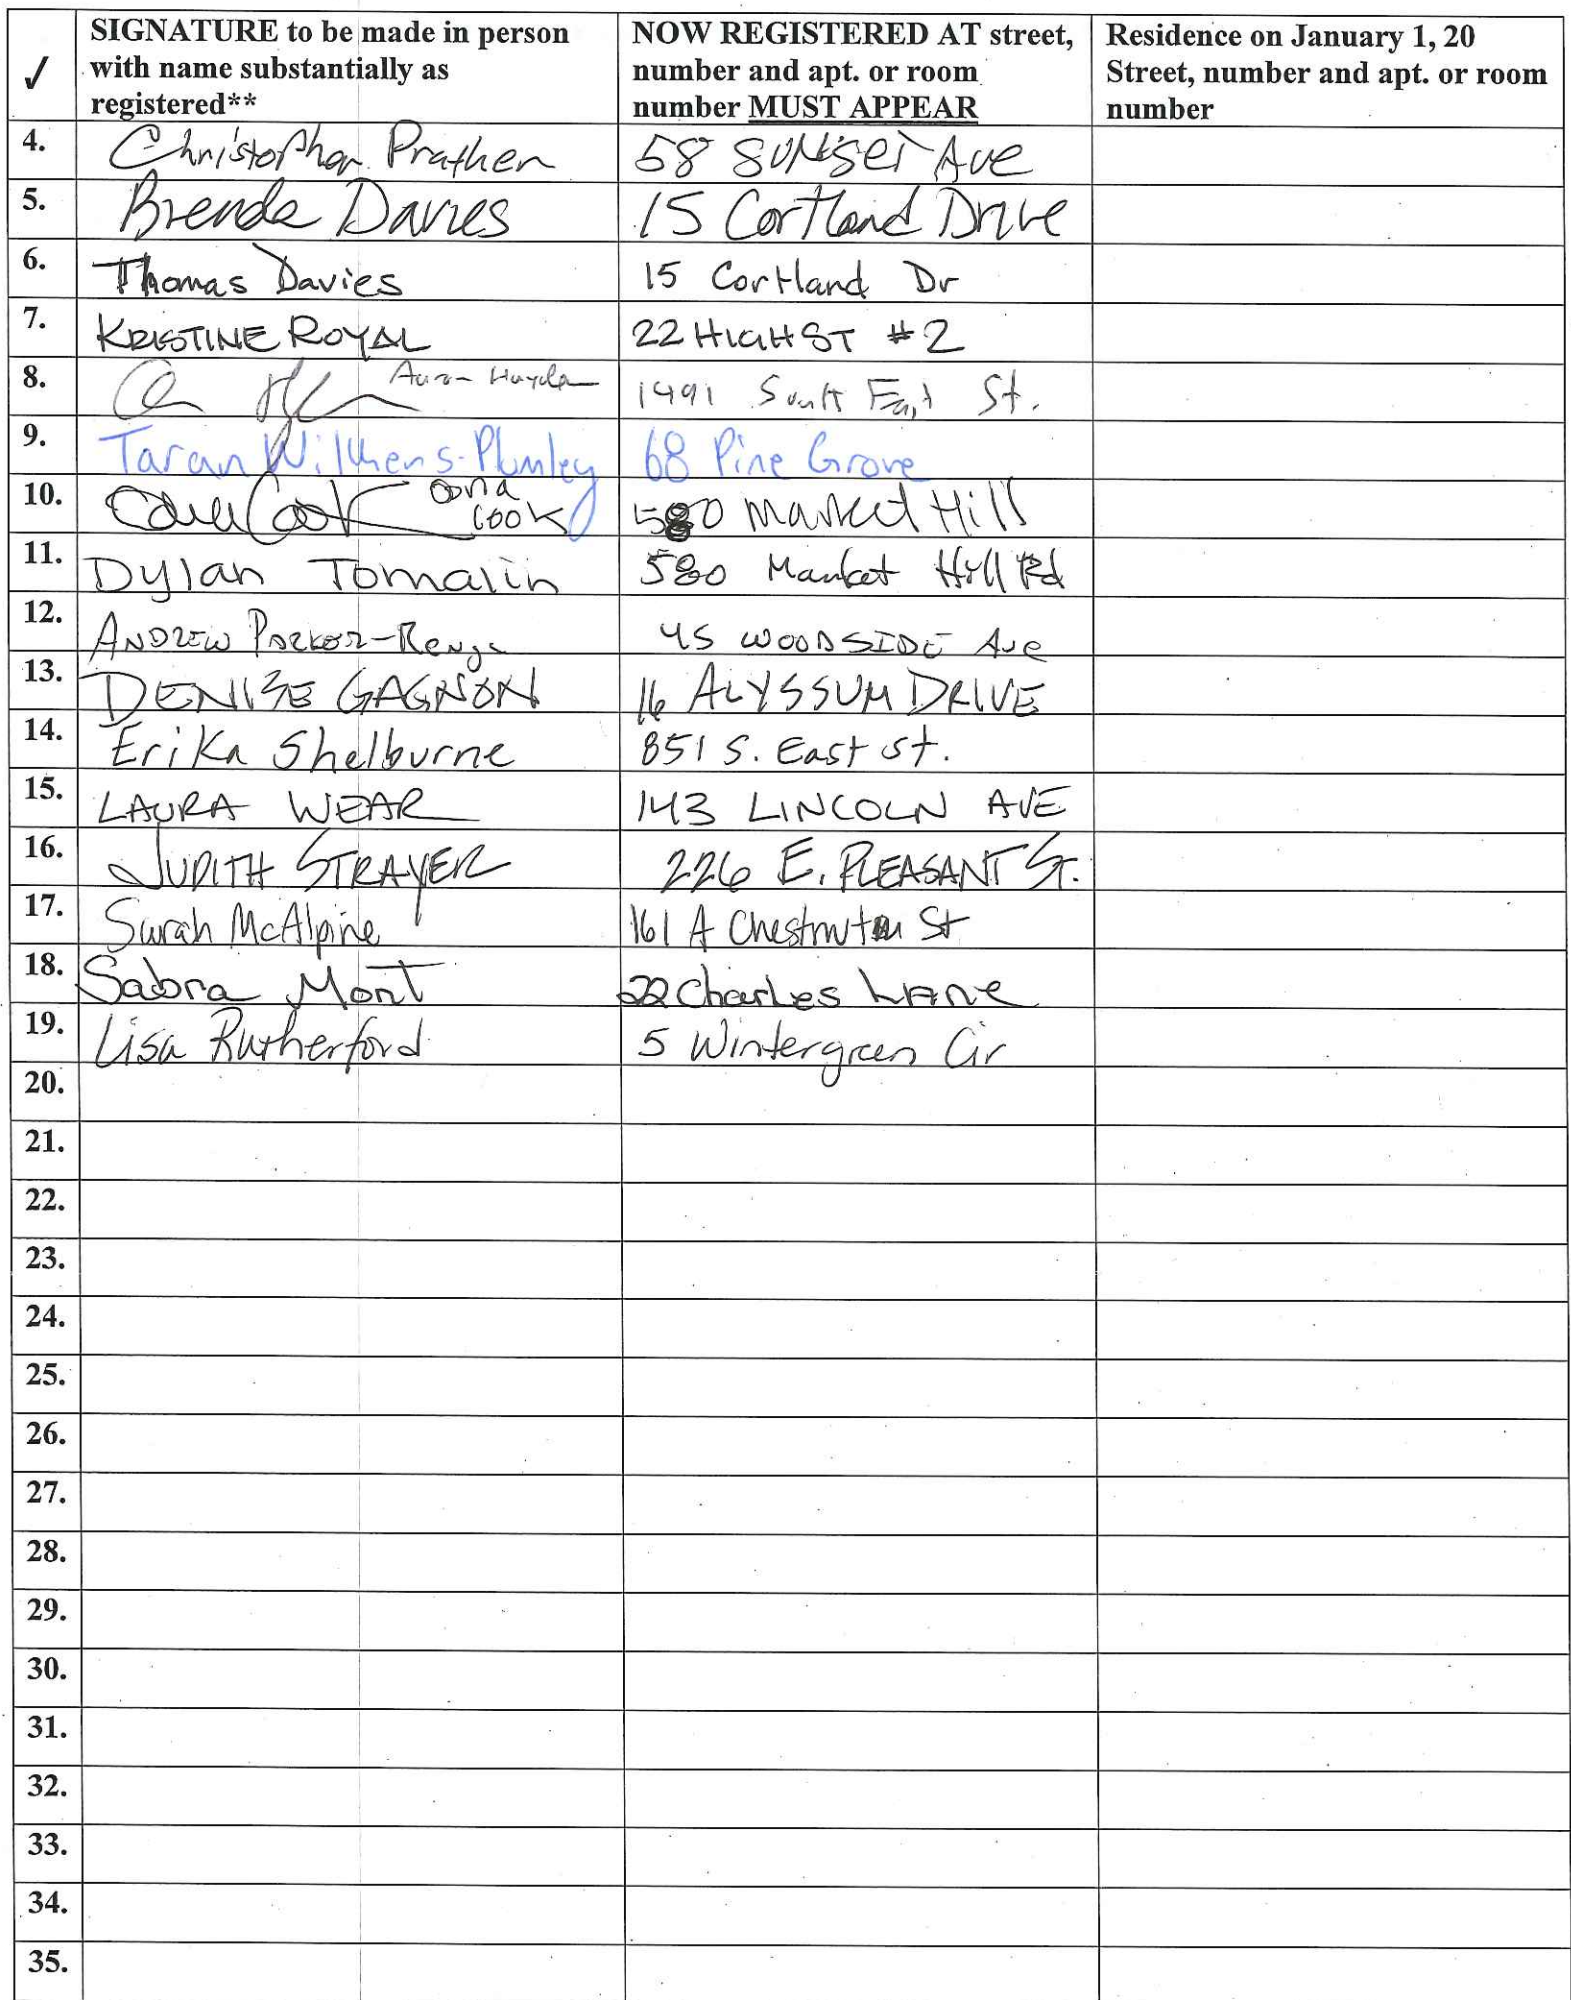 ✓ SIGNATURE to be made in person with name substantially as registered** NOW REGISTERED AT street, number and apt. or room number MUST APPEAR Residence on January 1, 20 Street, number and apt. or room number
4. Christopher Prather 58 Sunset Ave
5. Brenda Davies 15 Cortland Drive
6. Thomas Davies 15 Cortland Dr
7. KRISTINE ROYAL 22 HIGH ST #2
8. Aaron Hayden 1491 South East St.
9. Taran Wilkens-Plumley 68 Pine Grove
10. Oona Cook oona cook 580 Market Hill
11. Dylan Tomalin 580 Market Hill Rd
12. ANDREW PARKER-Renga 45 WOODSIDE Ave
13. DENISE GAGNON 16 ALYSSUM DRIVE
14. Erika Shelburne 851 S. East St.
15. LAURA WEAR 143 LINCOLN AVE
16. JUDITH STRAYER 226 E. PLEASANT ST.
17. Sarah McAlpine 161 A Chestnut St
18. Sabra Mont 22 Charles Lane
19. Lisa Rutherford 5 Wintergreen Cir
20.
21.
22.
23.
24.
25.
26.
27.
28.
29.
30.
31.
32.
33.
34.
35.